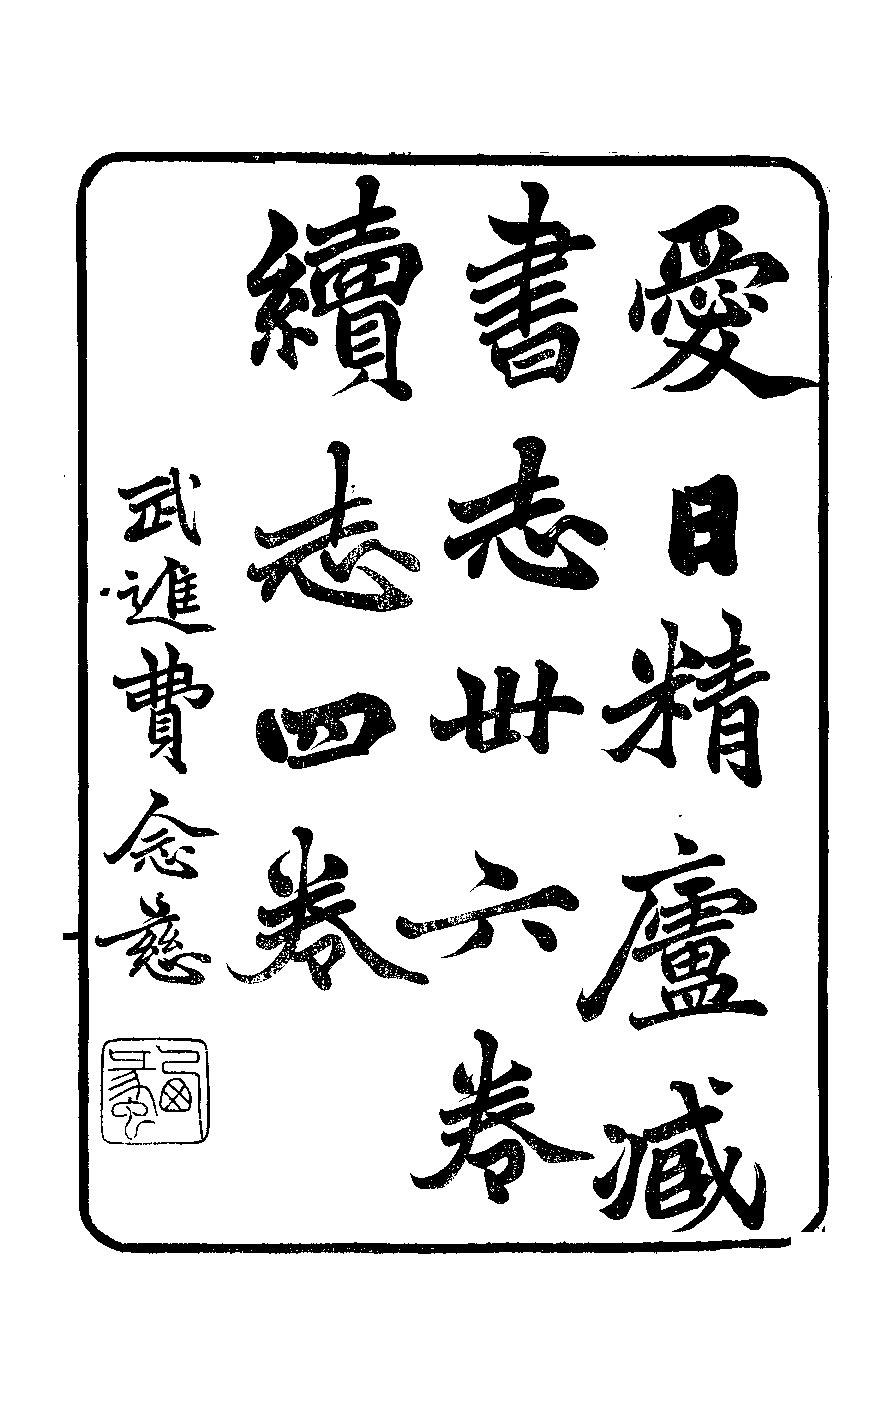 愛日精廬臧
書志丗六卷
續志四卷
武進費念慈